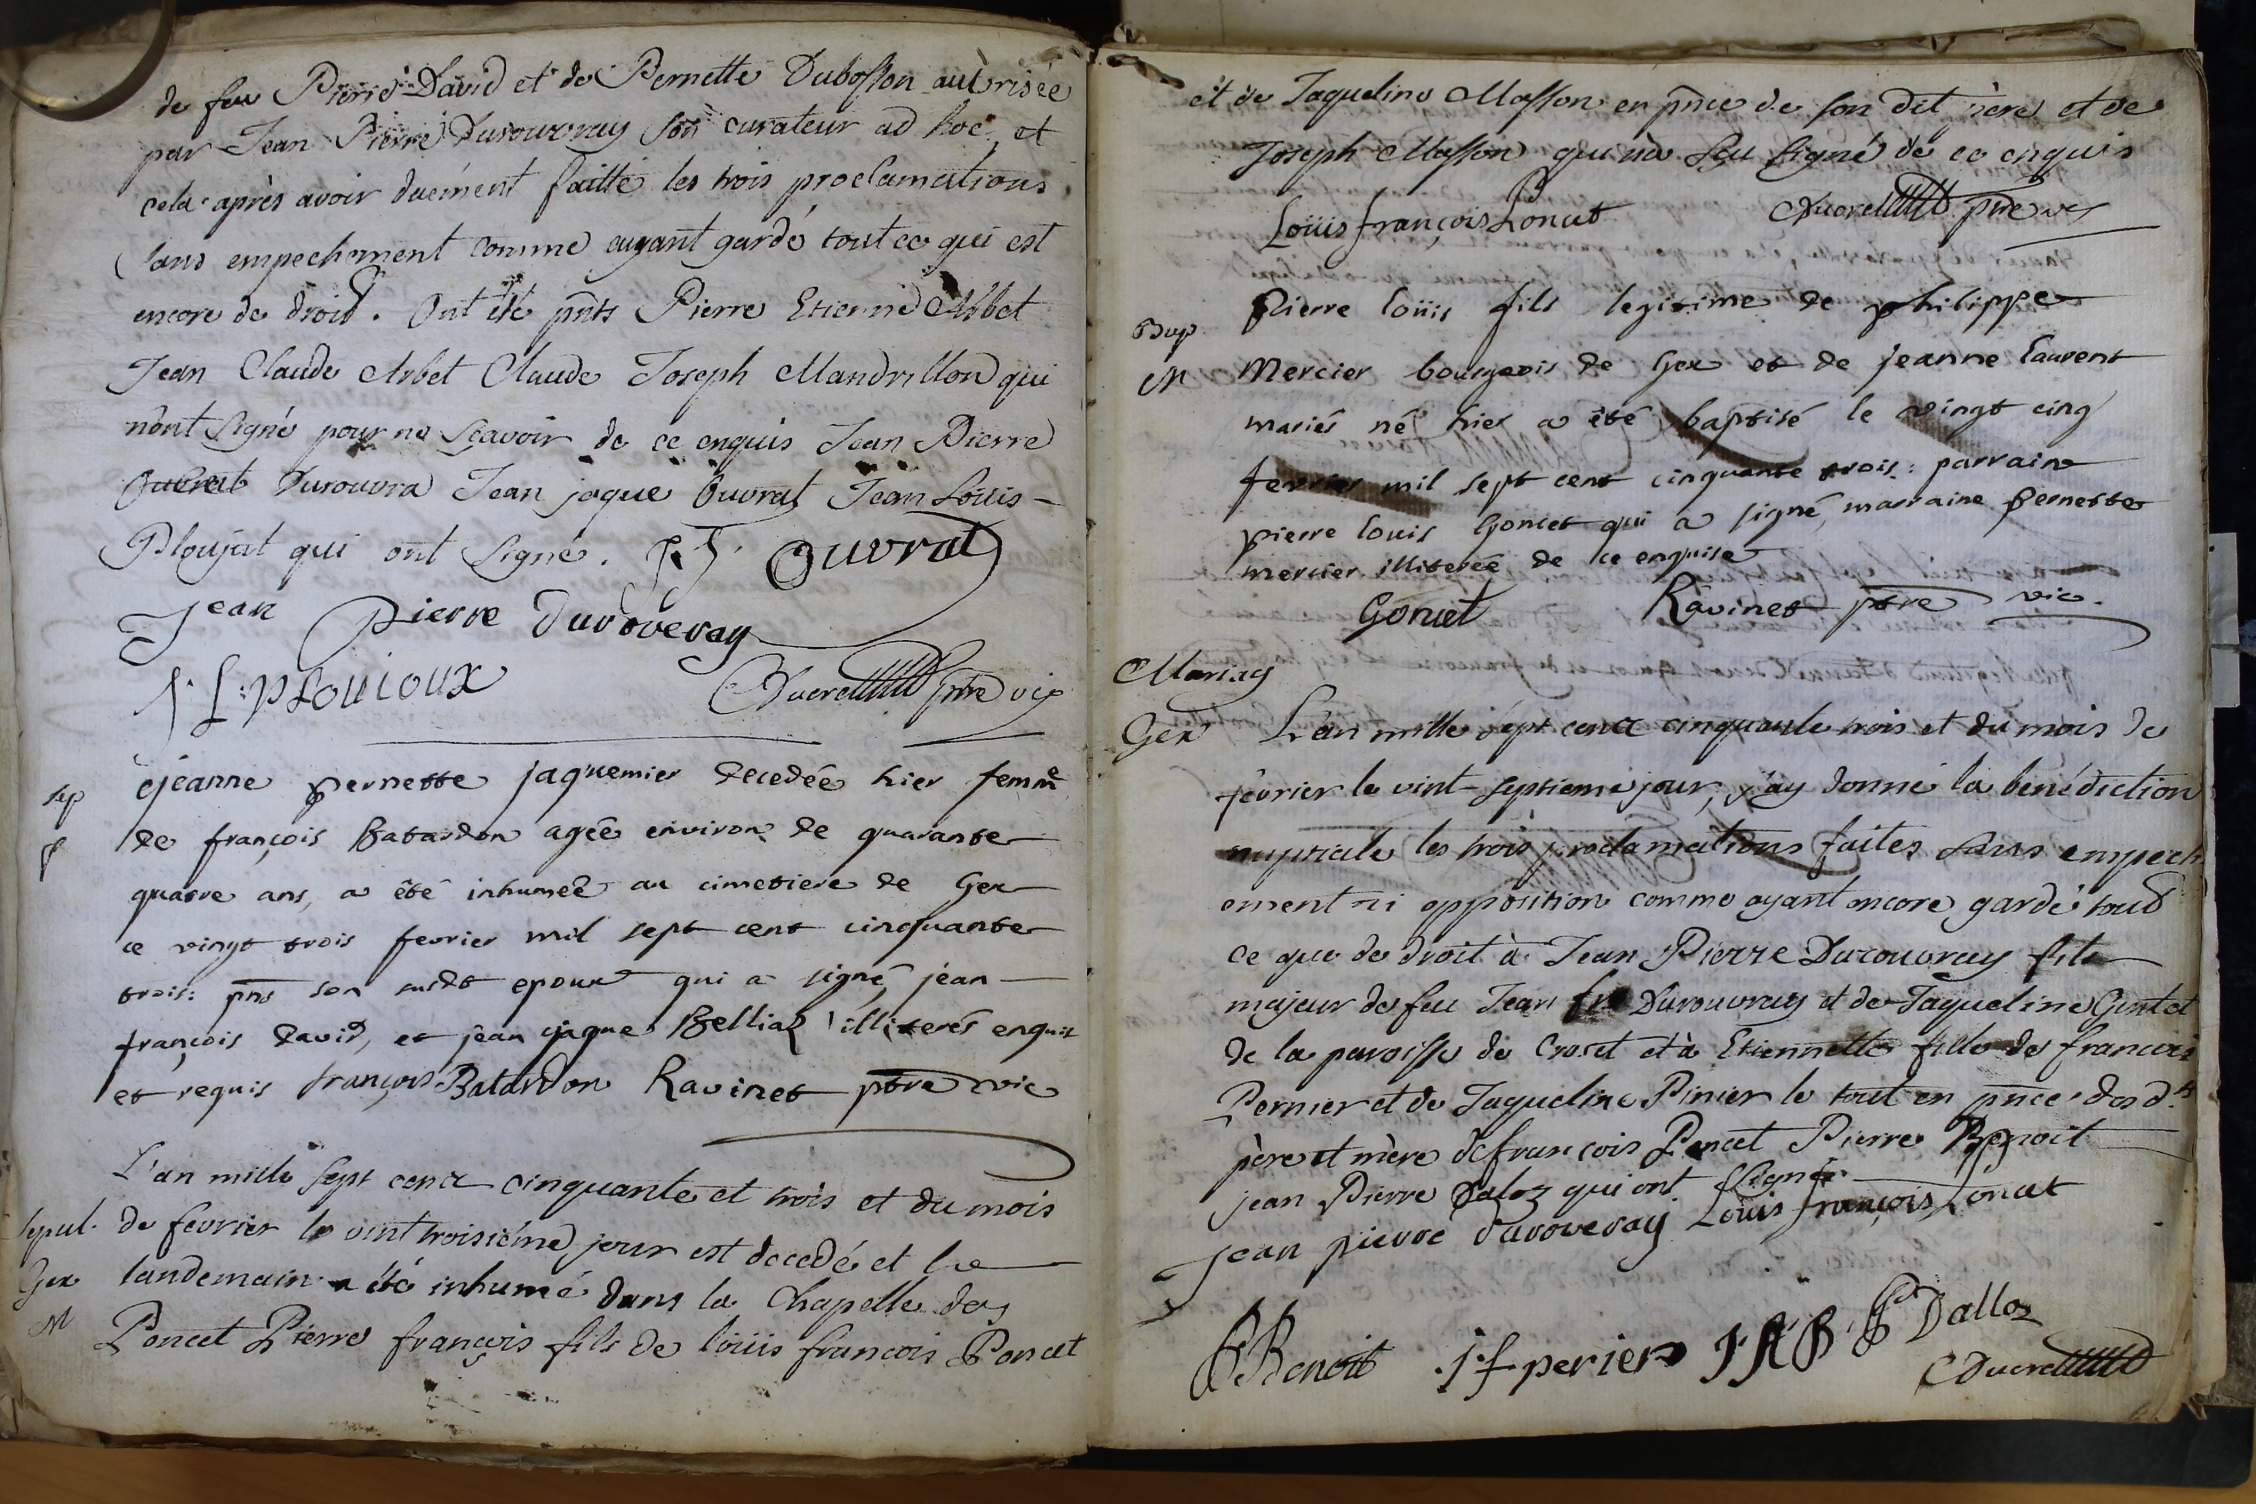 de feu Pierre David et de Pernette Dubosson autorisée
par Jean Pierre Durouvray son curateur ad hoc, et
cela après avoir duement faitte les trois proclamations
sans empechement comme ayant gardé tout ce qui est
encore de droid. Ont été pnts Pierre Etienne Arbet
Jean Claude Arbet Claude Joseph Mandrillon qui
n'ont signé pour ne sçavoir de ce enquis Jean Pierre
Ouvrat Durouvra Jean jaque Ouvrat Jean Louis
Ploujat qui ont signé. J J Ouvrat
Jean Pierre Duroveray
J: L: Ploujoux Ducret ptre vic
sep jeanne pernette jaquemier decedée hier femme
de françois Batardon agée environ de quarante
quatre ans, a été inhumée au cimetiere de Gex
ce vingt trois fevrier mil sept cent cinquante
trois: pns son susdt epoux qui a signé, jean
françois david, et jean jaque Belliad illiterés enquis
et requis françois Batardon Ravinet ptre vic
L'an mille sept cent cinquante et trois et du mois
Sepul. de fevrier le vint troisiéme jour est decedé et le
Gex landemain a été inhumé dans la Chapelle des
M Poncet Pierre françois fils de loüis francois Poncet
et de Jaqueline Masson en pnce de son dit père et de
Joseph Masson qui n'a sçu signé de ce enquis
Loüis françois Poncet Ducret ptre vic
Bap Pierre loüis fils legitime de philippe
M Mercier bourgeois de Gex et de jeanne laurent
mariés né hier a été baptisé le vingt cinq
fevrier mil sept cent cinquante trois: parrain
pierre louis Goncet qui a signé, marraine pernette
mercier illiterée de ce enquise
Goncet Ravinet ptre vic.
Mariag
Gex L'an mille sept cent cinquante trois et du mois de
février le vint-septieme jour, j'ay donné la bénédiction
nuptiale les trois proclamations faites sans empech
ement ni opposition comme ayant encore gardé tout
ce que de droit à Jean Pierre Durouvray fils
majeur de feu Jean Durouvray et de Jaqueline Gontet
de la paroisse de Croset et à Etiennette fille de francois
Pernier et de Jaqueline Pinier le tout en pnce des dts
père et mère de françois Poncet Pierre Benoit
jean Pierre Daloz qui ont signé
jean pierre duroveray Loüis françois Poncet
P Benoit j f perier J A B J P Dalloz
Ducret